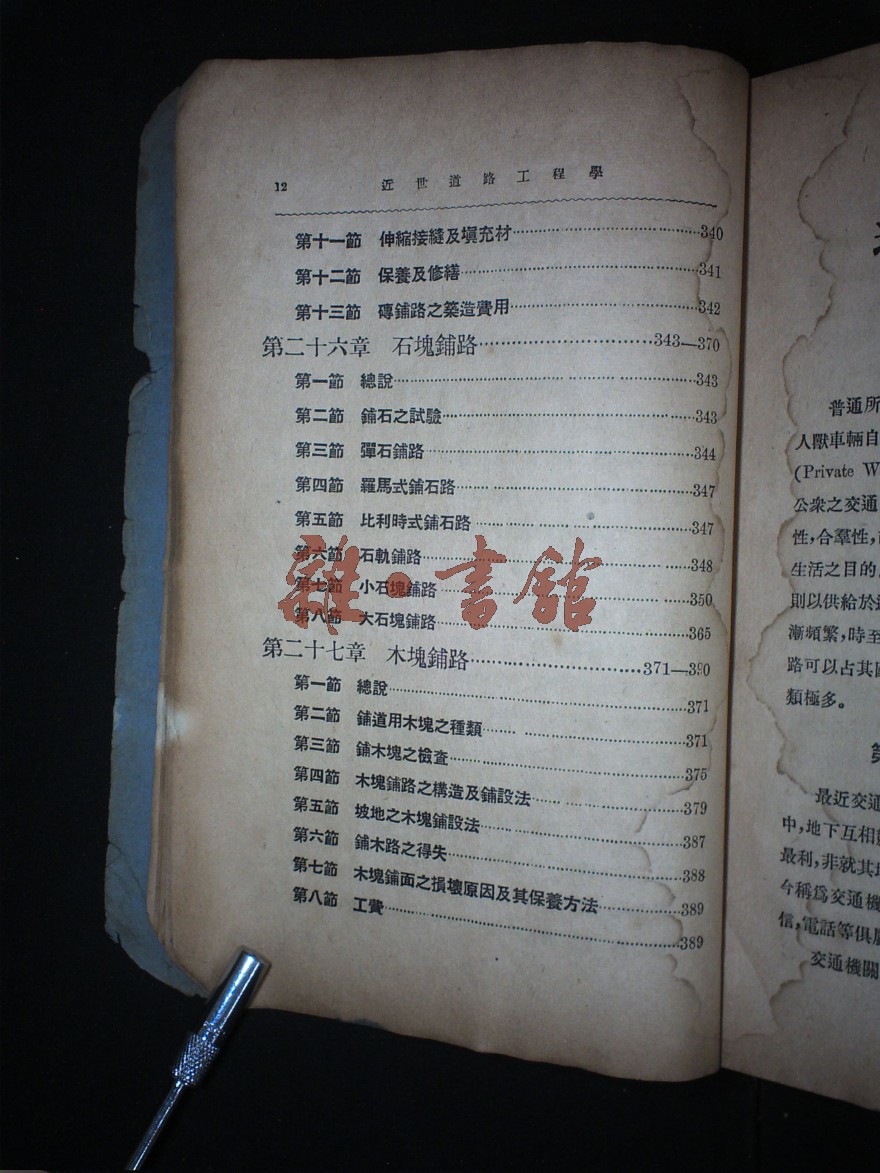 12 近世道路工程學
第十一節 伸縮接縫及塡充材 340
第十二節 保養及修繕 341
第十三節 磚鋪路之築造費用 342
第二十六章 石塊鋪路 343—370
第一節 總說 343
第二節 鋪石之試驗 343
第三節 彈石鋪路 344
第四節 羅馬式鋪石路 347
第五節 比利時式鋪石路 347
第六節 石軌鋪路 348
第七節 小石塊鋪路 350
第八節 大石塊鋪路 365
第二十七章 木塊鋪路 371—390
第一節 總說 371
第二節 鋪道用木塊之種類 371
第三節 鋪木塊之檢查 375
第四節 木塊鋪路之構造及鋪設法 379
第五節 坡地之木塊鋪設法 387
第六節 鋪木路之得失 388
第七節 木塊鋪面之損壞原因及其保養方法 389
第八節 工費 389
雜·書館
普通所
人獸車輛自
(Private W
公衆之交通
性,合羣性,
生活之目的
則以供給於
漸頻繁,時至
路可以占其
類極多。
第
最近交通
中,地下互相
最利,非就其
今稱爲交通機
信,電話等俱
交通機關